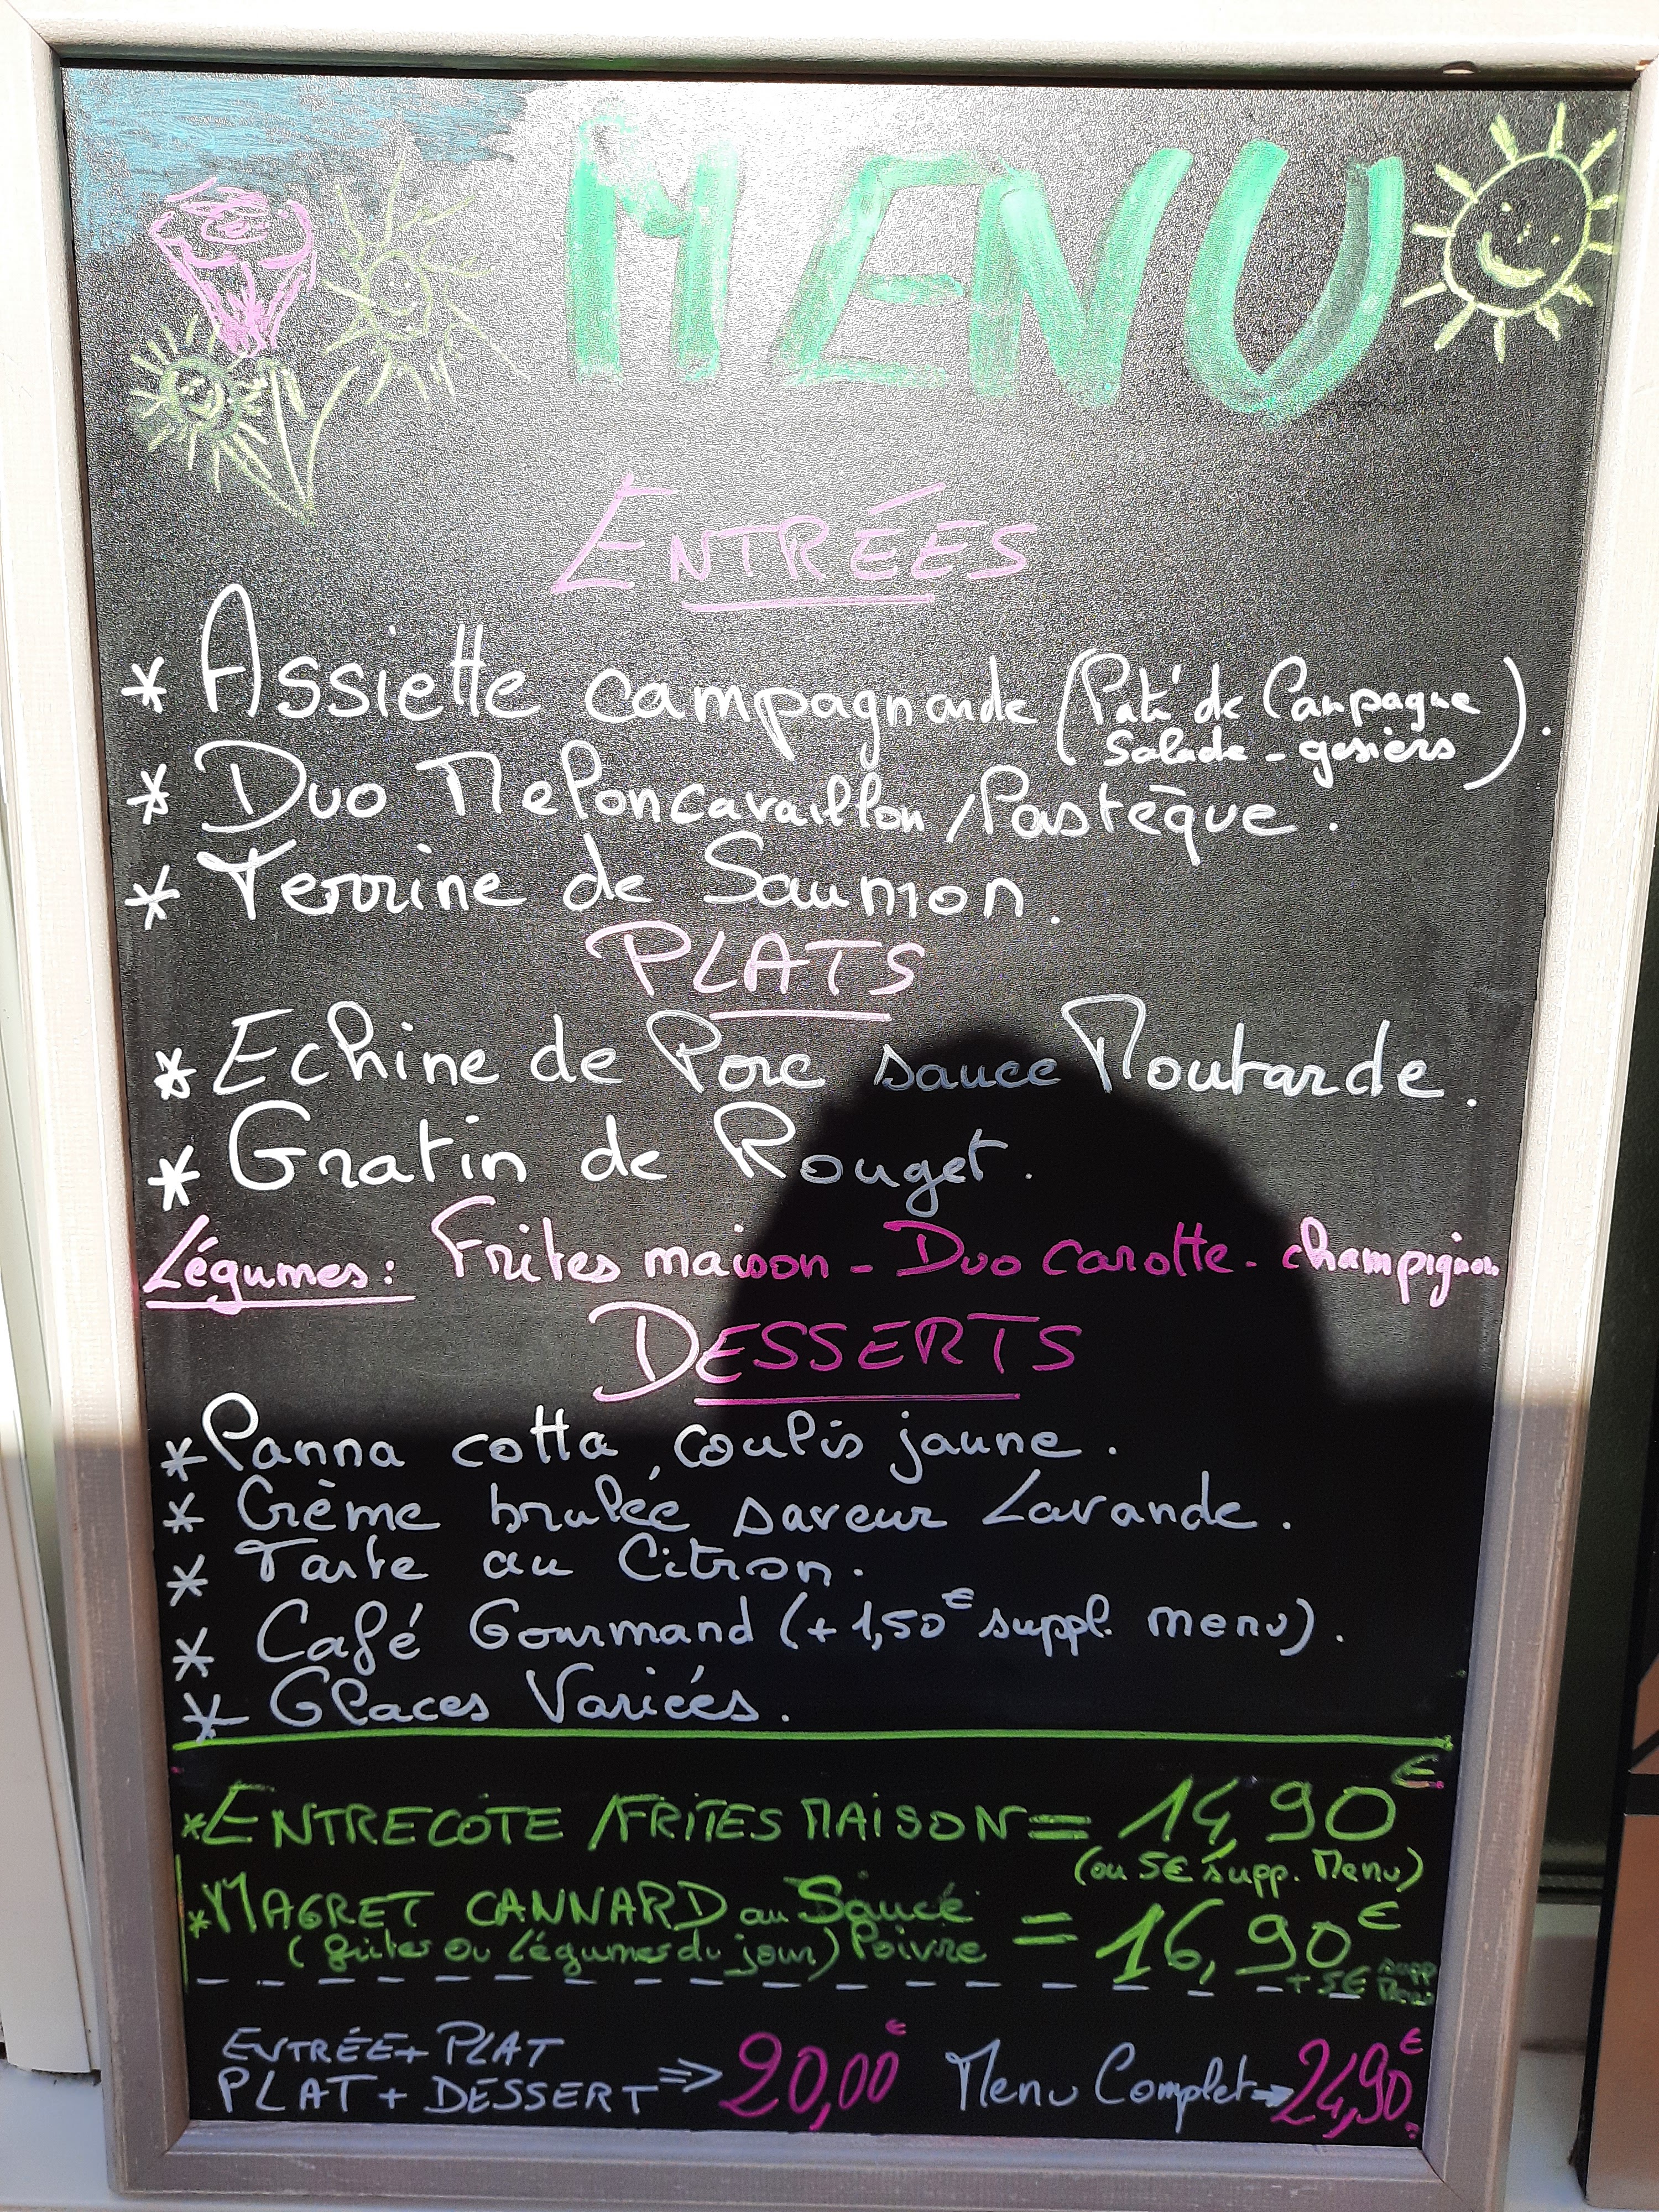 MENU
ENTRÉES
* Assiette campagnarde (Paté de Campagne
Salade - gesiers).
* Duo Melon cavaillon / Pastèque.
* Terrine de Saumon.
PLATS
* Echine de Porc sauce Moutarde.
* Gratin de Rouget.
Légumes: Frites maison - Duo carotte - champignon
DESSERTS
* Panna cotta coulis jaune.
* Crème brulée saveur Lavande.
* Tarte au Citron.
* Café Gourmand (+ 1,50€ suppl. menu).
* Glaces Variées.
* ENTRECOTE / FRITES MAISON = 14,90€
(ou 5€ supp. Menu)
* MAGRET CANNARD au Sauce = 16,90€
(frites ou Légumes du jour) Poivre
+ 5€ supp Menu
ENTRÉE + PLAT
PLAT + DESSERT => 20,00€ Menu Complet => 24,90€